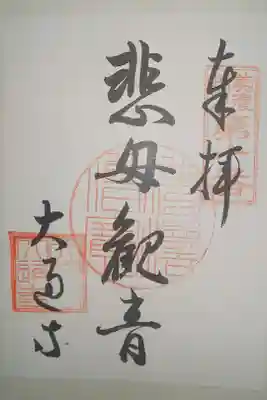 奉拝
悲母観音
大通寺